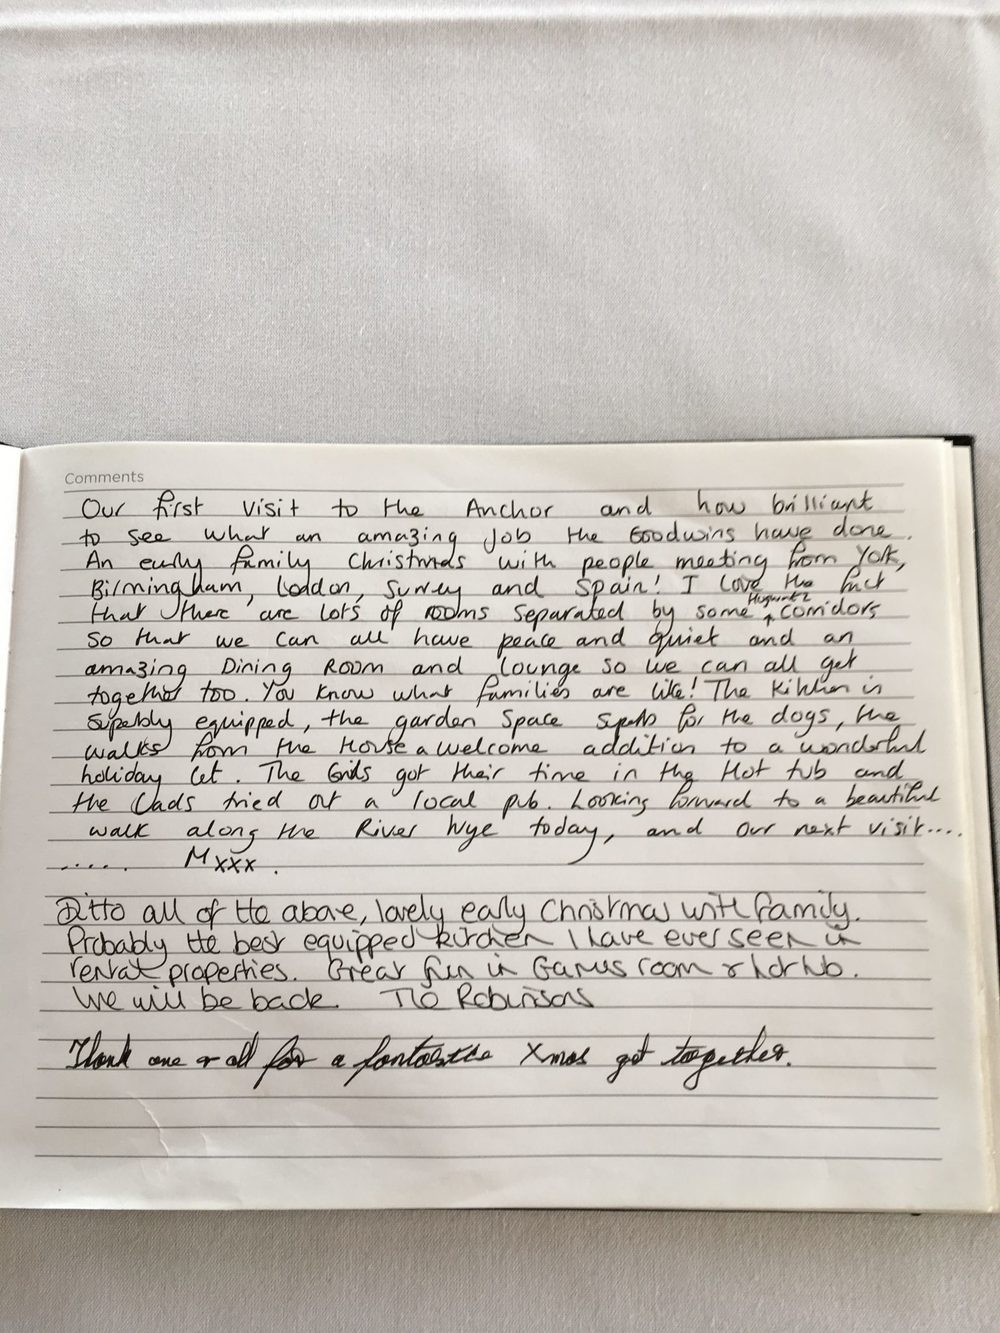 Comments
Our first visit to the Anchor and how brilliant
to see what an amazing job the Goodwins have done.
An early family Christmas with people meeting from York,
Birmingham, London, Surrey and Spain! I love the fact
that there are lots of rooms separated by some Hogwartz corridors
so that we can all have peace and quiet and an
amazing Dining Room and lounge so we can all get
together too. You know what families are like! The kitchen is
superbly equipped, the garden space superb for the dogs, the
walks from the House a welcome addition to a wonderful
holiday let. The Girls got their time in the Hot tub and
the Dads tried out a local pub. Looking forward to a beautiful
walk along the River Wye today, and our next visit....
..... Mxxx.
Ditto all of the above, lovely early Christmas with family.
Probably the best equipped kitchen I have ever seen in
rental properties. Great fun in Games room & hot tub.
We will be back. The Robinsons
Thank one & all for a fantastic Xmas get together.